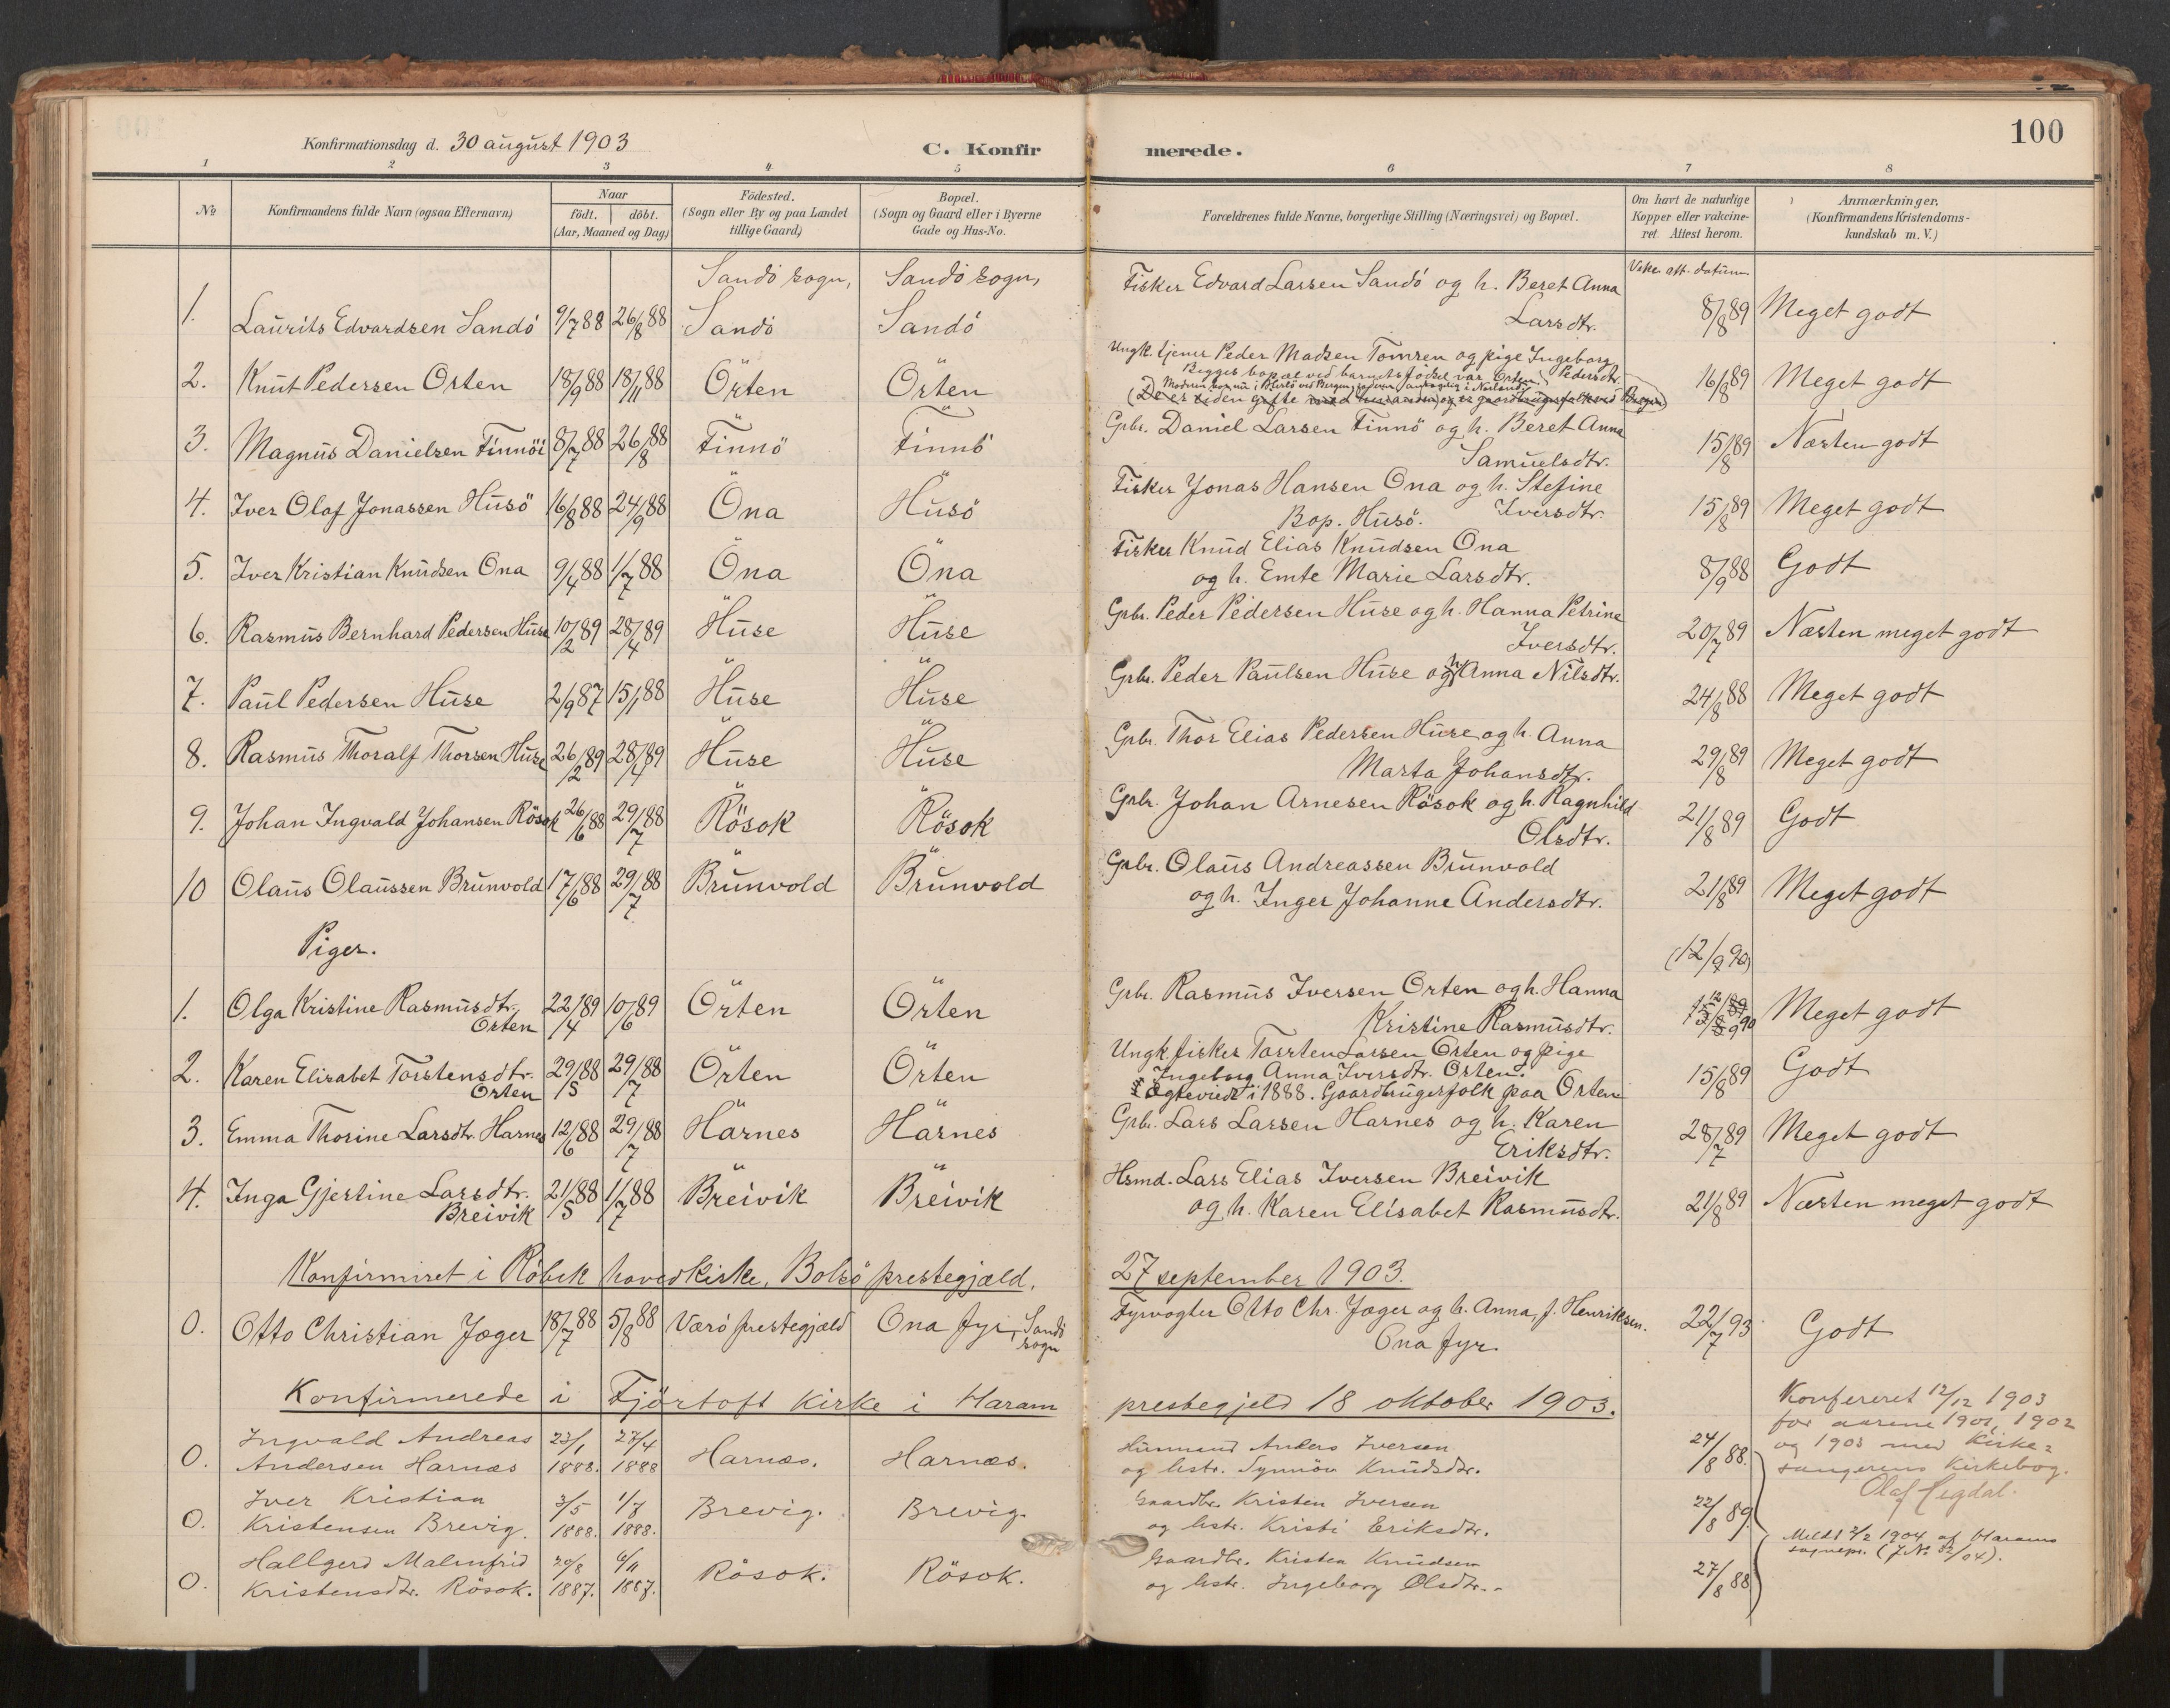 100
Konfirmationsdag d. 30 august 1903
C. Konfirmerede.
1 2 3 4 5 6 7 8
No
Konfirmandens fulde Navn (ogsaa Efternavn)
Naar
födt. döbt.
(Aar, Maaned og Dag)
Födested.
(Sogn eller By og paa Landet
tillige Gaard)
Bopæl.
(Sogn og Gaard eller i Byerne
Gade og Hus-No.
Forældrenes fulde Navne, borgerlige Stilling (Næringsvei) og Bopæl.
Om havt de naturlige
Kopper eller vakcine-
ret. Attest herom.
Anmærkninger.
(Konfirmandens Kristendoms-
kundskab m. V.)
Sandö sogn, Sandö sogn, Fisker Edvard Larsen Sandö og h. Beret Anna Vakc. att. datum
1. Laurits Edvardsen Sandö 9/7 88 26/8 88 Sandö Sandö Larsdtr. 8/8 89 Meget godt
Ungk. tjener Peder Madsen Tomren og pige Ingeborg
2. Knut Pedersen Orten 18/9 88 18/11 88 Orten Orten Begges bopæl ved barnets födsel var Orten. Pedersdtr. 16/8 89 Meget godt
(De er siden gifte
3. Magnus Danielsen Finnöi 8/7 88 26/8 88 Finnö Finnö Grbr. Daniel Larsen Finnö og h. Beret Anna 15/8 89 Næsten godt
Samuelsdtr.
4. Iver Olaf Jonassen Husö 16/8 88 24/9 88 Ona Husö Fisker Jonas Hansen Ona og h. Stefine 15/8 89 Meget godt
Bop. Husö. Iversdtr.
5. Iver Kristian Knudsen Ona 9/4 88 1/7 88 Ona Ona Fisker Knud Elias Knudsen Ona 8/9 88 Godt
og h. Emte Marie Larsdtr.
6. Rasmus Bernhard Pedersen Huse 10/2 89 28/4 89 Huse Huse Grbr. Peder Pedersen Huse og h. Hanna Petrine 20/7 89 Næsten meget godt
Iversdtr.
7. Paul Pedersen Huse 2/9 87 15/1 88 Huse Huse Grbr. Peder Paulsen Huse og h. Anna Nilsdtr. 24/8 88 Meget godt
8. Rasmus Thoralf Thorsen Huse 26/2 89 28/4 89 Huse Huse Grbr. Thor Elias Pedersen Huse og h. Anna 29/8 89 Meget godt
Marta Johansdtr.
9. Johan Ingvald Johansen Rösok 26/6 88 29/7 88 Rösok Rösok Grbr. Johan Arnesen Rösok og h. Ragnhild 21/8 89 Godt
Olsdtr.
10 Olaus Olaussen Brunvold 17/6 88 29/7 88 Brunvold Brunvold Grbr. Olaus Andreassen Brunvold 21/8 89 Meget godt
og h. Inger Johanne Andersdtr.
Piger. (12/9 90)
1. Olga Kristine Rasmusdtr. 22/4 89 10/6 89 Orten Orten Grbr. Rasmus Iversen Orten og h. Hanna Meget godt
Orten Kristine Rasmusdtr.
2. Karen Elisabet Torstensdtr. 29/5 88 29/7 88 Orten Orten Ungk. fisker Torsten Larsen Orten og pige 15/8 89 Godt
Orten Ingeborg Anna Iversdtr. Orten.
Ægteviet i 1888. Gaardbrugerfolk paa Orten
3. Emma Thorine Larsdtr. Harnes 12/6 88 29/7 88 Harnes Harnes Grbr. Lars Larsen Harnes og h. Karen 28/7 89 Meget godt
Eriksdtr.
4. Inga Gjertine Larsdtr. 21/5 88 1/7 88 Breivik Breivik Hsmd. Lars Elias Iversen Breivik 21/8 89 Næsten meget godt
Breivik og h. Karen Elisabet Rasmusdtr.
Konfirmeret i Röbek hovedkirke, Bolsö prestegjæld, 27 september 1903.
0. Otto Christian Jæger 18/7 88 5/8 88 Værö prestegjæld Ona fyr, Sandö sogn Fyrvogter Otto Chr. Jæger og h. Anna, f. Henriksen. 22/7 93 Godt
Ona fyr.
Konfirmerede i Fjörtoft kirke i Haram prestegjeld 18 oktober 1903.
0. Ingvald Andreas 23/1 28/4 Husmand Anders Iversen 24/8 88.
Andersen Harnæs 1888. 1888 Harnæs. Harnæs. og hstr. Synnöv Knudsdtr.
0. Iver Kristian 3/5 1/7 Brevig. Brevig. Gaardbr. Kristen Iversen 22/8 89.
Kristensen Brevig. 1888. 1888. og hstr. Kristi Eriksdtr.
0. Hallgerd Malmfrid 20/8 6/11 Rösok. Rösok. Gaardbr. Kristen Knudsen 27/8 88
Kristensdtr. Rösok. 1887. 1887. og hstr. Ingeborg Olsdtr.
Konfereret 12/12 1903
for aarene 1901, 1902
og 1903 med kirke=
sangerens kirkebog.
Olaf Hegdal.
Meldt 2/2 1904 af Harams
sognepr. (J. No 32/04).